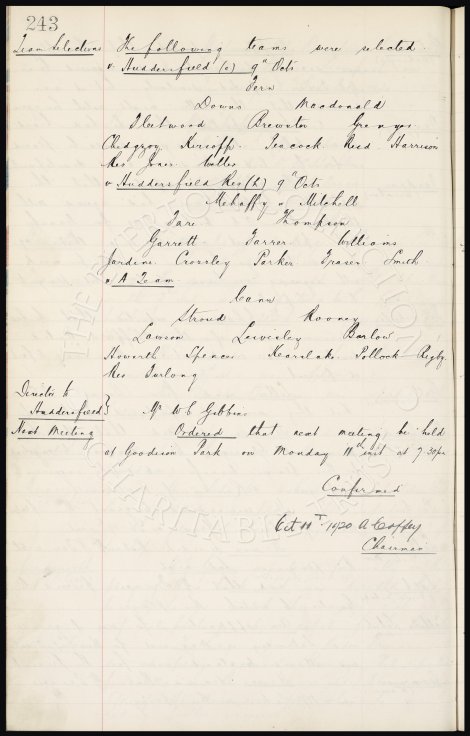 243
Team Selections The following teams were selected.
v. Huddersfield (a) 9th Octr
Fern
Downs Macdonald
Fleetwood Brewster Grenyer
Chedgzoy Kirsopp. Peacock Reid Harrison
Res Jones Wolles
v Huddersfield Res (h) 9th Octr
Mehaffy or Mitchell
Tari Thompson
Garrett Farrer Williams
Jardine Crossley Parker Fraser Smith.
v A Team.
Cann
Stroud Rooney
Lawson Leivesley Barlow
Howarth Spencer Kearslake Pollock Rigby
Res Furlong
Director to
Huddersfield } Mr W C Gibbins
Next Meeting Ordered that next meeting be held
at Goodison Park on Monday 11th inst at 7.30pm
Confirmed
Oct 11th 1920 A Coffey
Chairman
THE EVERTON COLLECTION
CHARITABLE TRUST